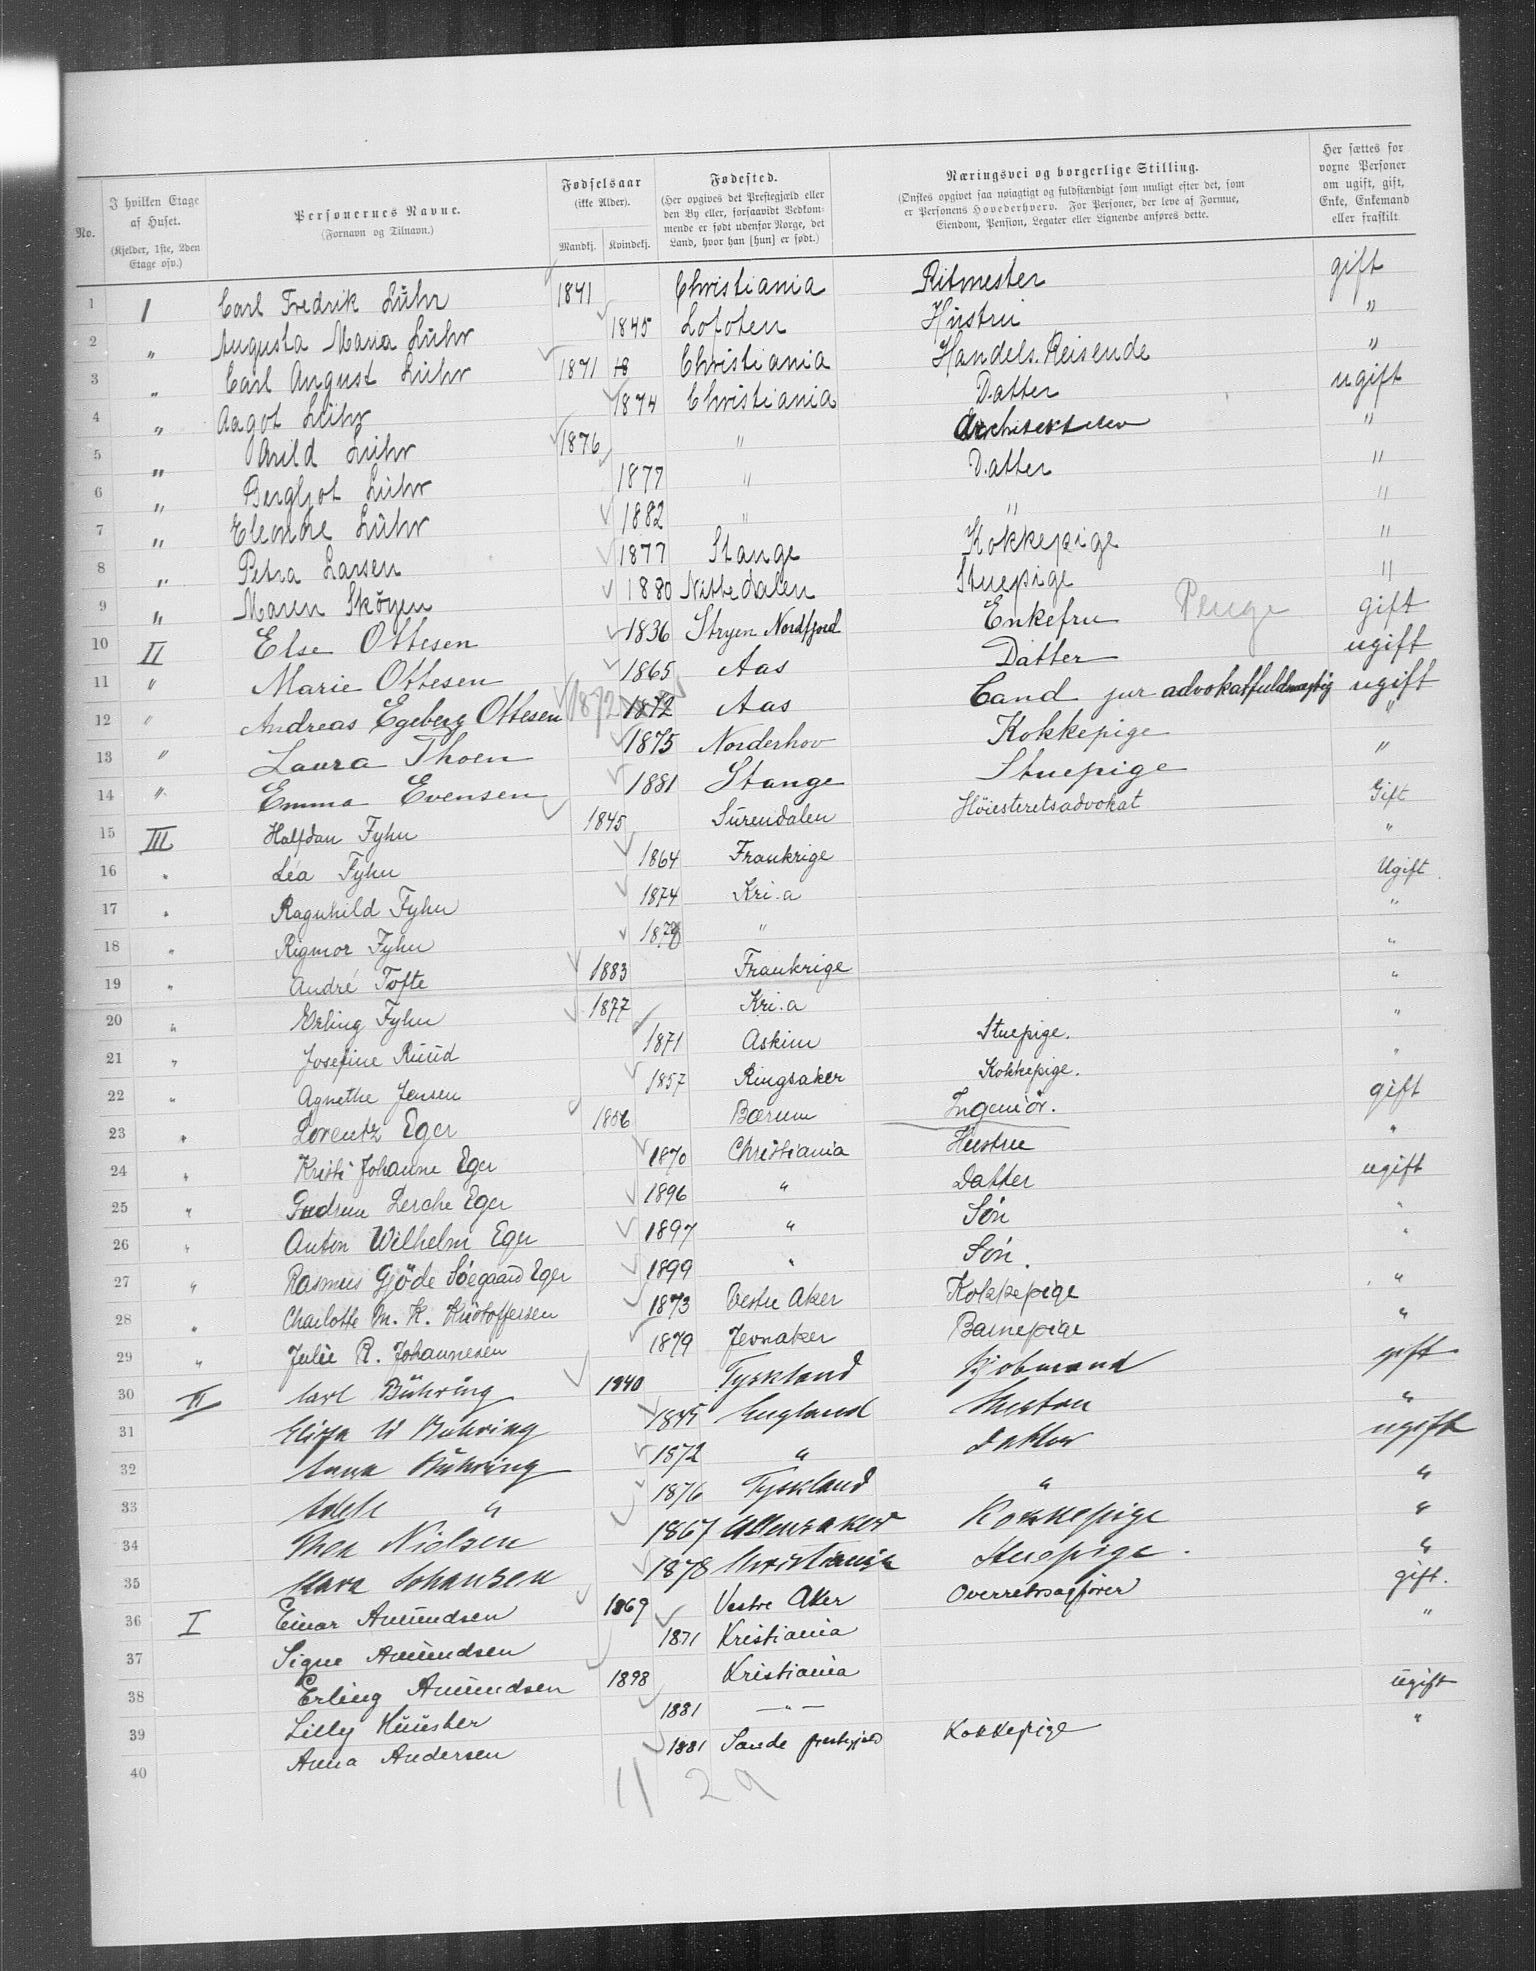 No. | I hvilken Etage af Huset. (Kjelder, 1ste, 2den Etage osv.) | Personernes Navne. (Fornavn og Tilnavn.) | Fødselsaar (ikke Alder). Mandkj. Kvindekj. | Fødested. (Her opgives det Prestegjæld eller den By eller, forsaavidt Vedkommende er født udenfor Norge, det Land, hvor han [hun] er født.) | Næringsvei og borgerlige Stilling. (Ønskes opgivet saa nøiagtigt og fuldstændigt som muligt efter det, som er Personens Hovederhverv. For Personer, der leve af Formue, Eiendom, Pension, Legater eller Lignende anføres dette.) | Her sættes for voxne Personer om ugift, gift, Enke, Enkemand eller fraskilt
1 I Carl Fredrik Lühr 1841 Christiania Ritmester gift
2 " Augusta Maria Lühr 1845 Lofoten Hustru "
3 " Carl August Lühr 1871 Christiania Handels.Reisende "
4 " Aagot Lühr 1874 Christiania Datter ugift
5 " Arild Lühr 1876 " Architektelev "
6 " Bergljot Lühr 1877 " Datter "
7 " Eleonore Lühr 1882 " " "
8 " Petra Larsen 1877 Stange Kokkepige "
9 " Maren Skøyen 1880 Nittedalen Stuepige "
10 II Else Ottesen 1836 Stryen Nordfjord Enkefru Penge gift
11 " Marie Ottesen 1865 Aas Datter ugift
12 " Andreas Egeberg Ottesen 1872 1872 Aas Cand jur advokatfuldmægtig ugift
13 " Laura Thoen 1875 Norderhov Kokkepige "
14 " Emma Evensen 1881 Stange Stuepige "
15 III Halfdan Fyhn 1845 Surendalen Høiesteretsadvokat Gift
16 " Léa Fyhn 1864 Frankrige "
17 " Ragnhild Fyhn 1874 Kri.a Ugift
18 " Rigmor Fyhn 1878 " "
19 " André Tofte 1883 Frankrige "
20 " Erling Fyhn 1877 Kri.a "
21 " Josefine Ruud 1871 Askim Stuepige. "
22 " Agnethe Jensen 1857 Ringsaker Kokkepige. "
23 " Lorentz Eger 1866 Bærum Ingeniør. gift
24 " Kristi Johanne Eger 1870 Christiania Hustru "
25 " Gudrun Lerche Eger 1896 " Datter ugift
26 " Anton Wilhelm Eger 1897 " Søn "
27 " Rasmus Gjöde Söegaard Eger 1899 " Søn. "
28 " Charlotte M. K. Kristoffersen 1873 Vestre Aker Kokkepige "
29 " Julie R. Johannesen 1879 Jevnaker Barnepige "
30 Carl Bühring 1840 Tyskland Kjøbmand gift
31 Bühring 1845 England Hustru "
32 Anna Bühring 1872 " datter ugift
33 " 1876 Tyskland " "
34 Thea Nielsen 1867 Ullensaker Kokkepige "
35 Klara Johansen 1878 Christiania Stuepige. "
36 I Einar Amundsen 1869 Vestre Aker Overretssagfører gift.
37 Signe Amundsen 1871 Kristiania "
38 Erling Amundsen 1898 Kristiania
39 Lilly 1881 — " — ugift
40 Anna Andersen 1881 Sande prestegjeld Kokkepige "
11 29